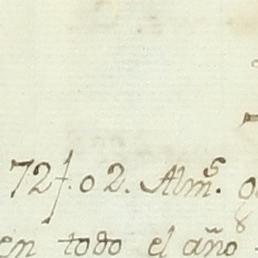 72f. o 2. Alm.s
en todo el año